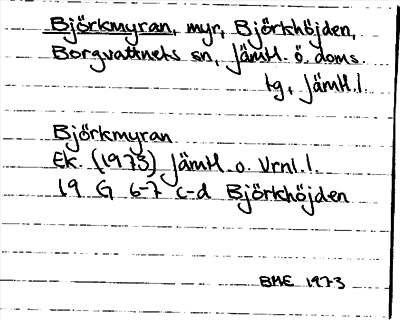 Björkmyran, myr, Björkhöjden,
Borgvattnets sn, Jämtl. ö. doms.
tg, Jämtl. l.
Björkmyran
Ek. (1973) Jämtl o. Vrnl. l.
19 G 6-7 c-d Björkhöjden
BME 1973